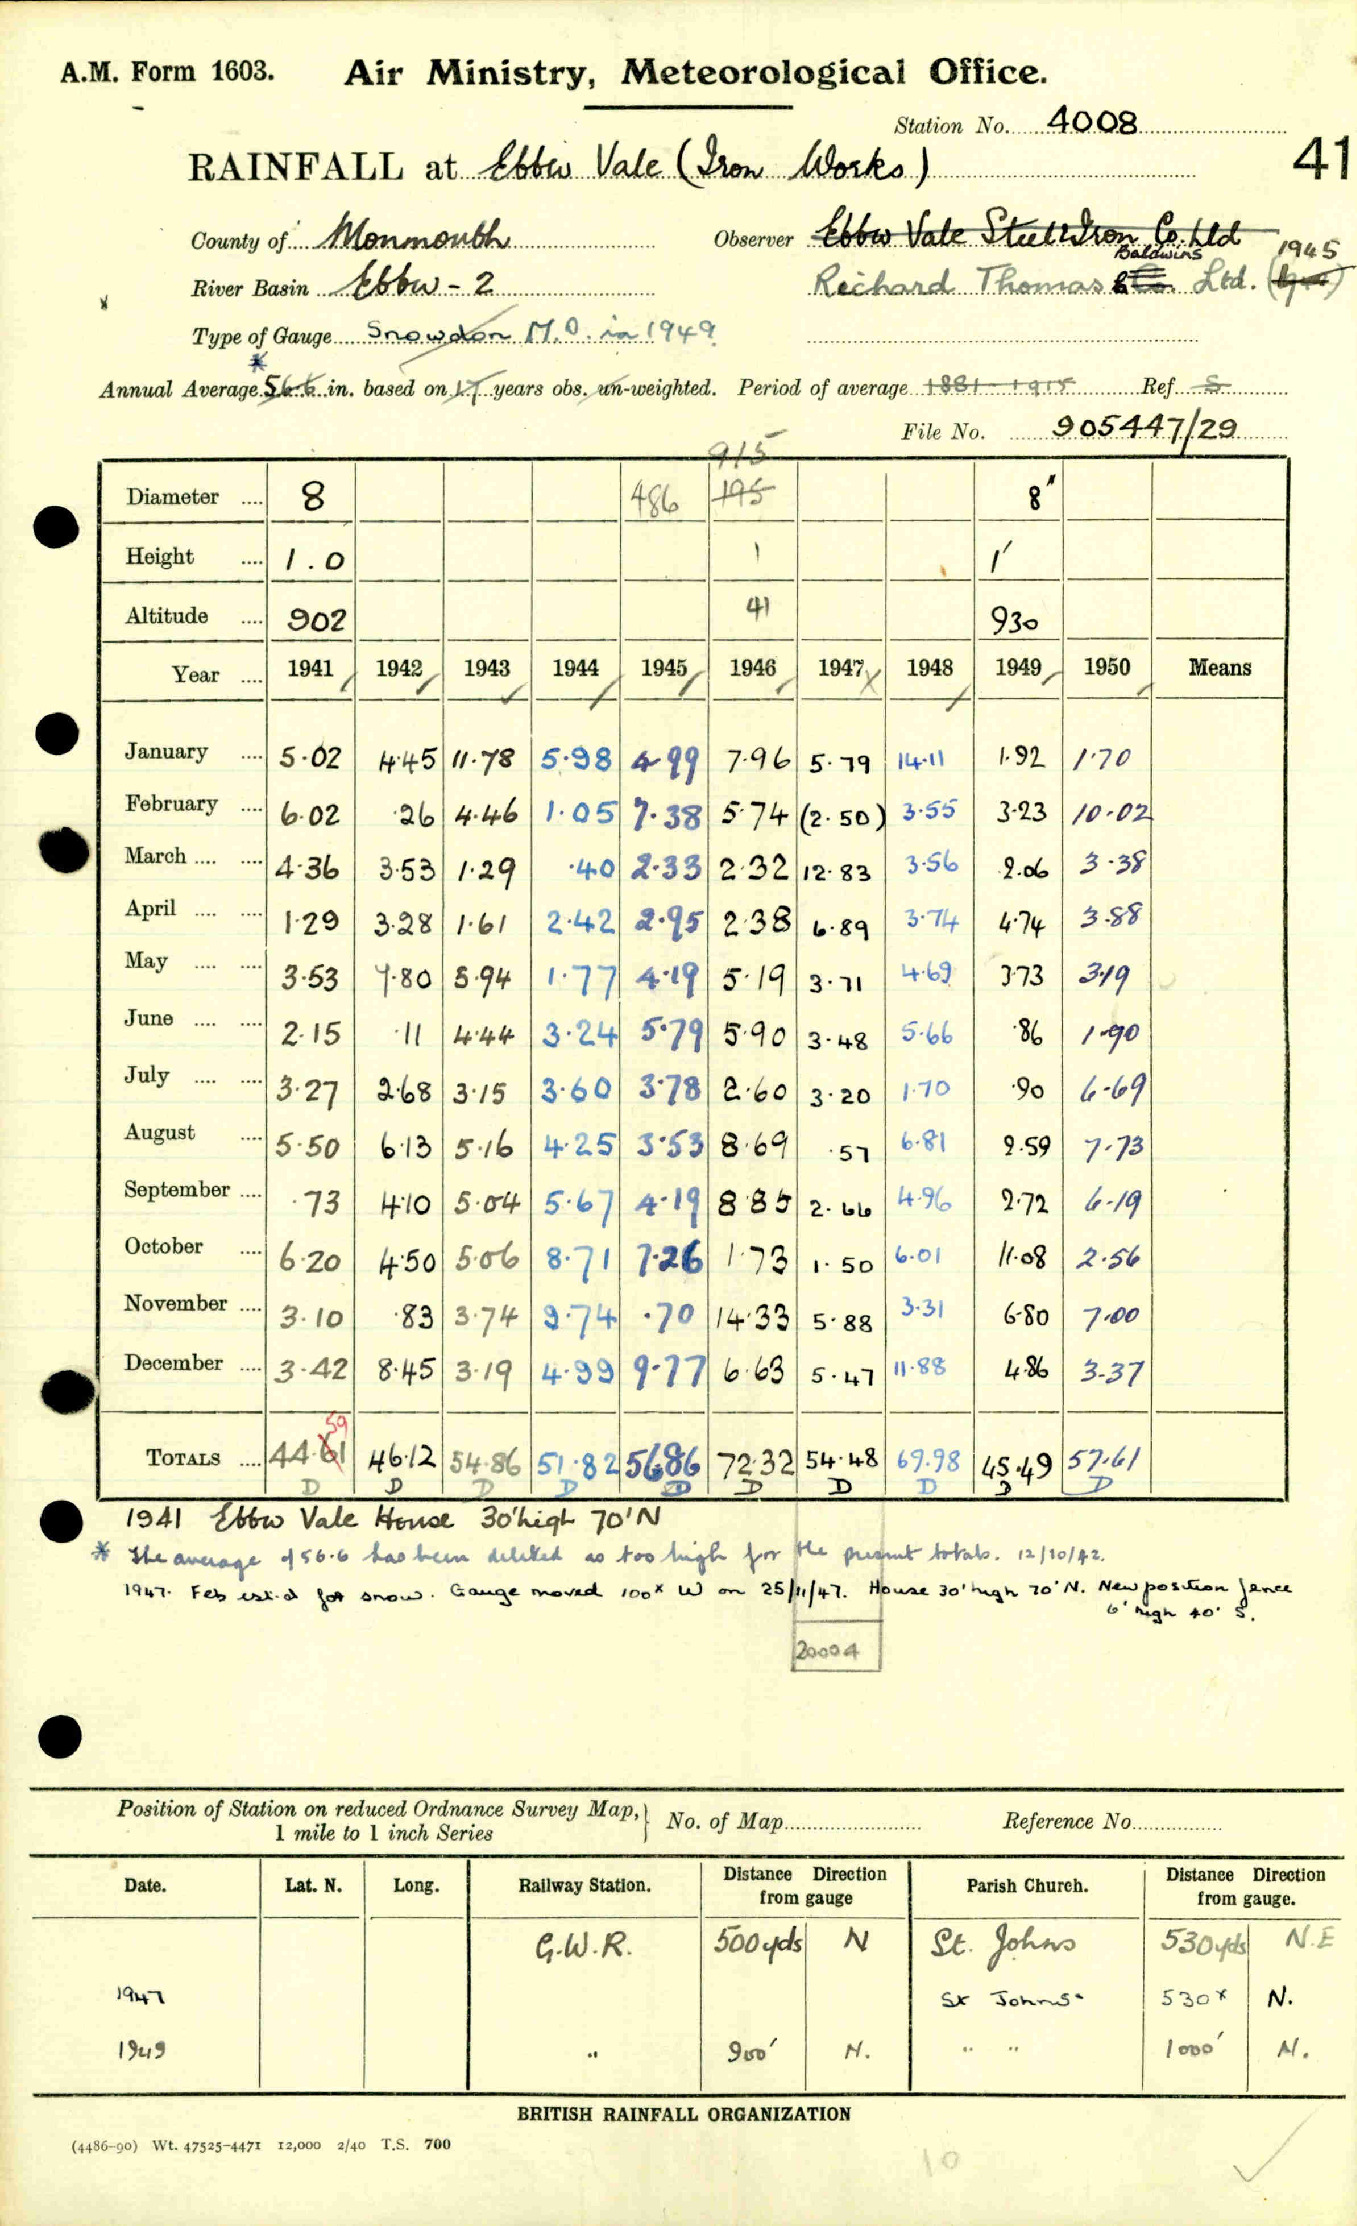 A.M. Form 1603. Air Ministry, Meteorological Office.
Station No. 4008
41
RAINFALL at Ebbw Vale (Iron Works)
County of Monmouth Observer Ebbw Vale Steel & Iron Co. Ltd
River Basin Ebbw - 2 Richard Thomas & Co. Baldwins Ltd. 1945
Type of Gauge Snowdon M.O. in 1949
Annual Average * 56.6 in. based on 17 years obs. un-weighted. Period of average 1881-1915 Ref. S
File No. 905447/29
915
Diameter .... 8 486 195 8"
Height .... 1.0 1 1'
Altitude .... 902 41 930
Year .... 1941 1942 1943 1944 1945 1946 1947 1948 1949 1950 Means
January .... 5.02 4.45 11.78 5.98 4.99 7.96 5.79 14.11 1.92 1.70
February .... 6.02 .26 4.46 1.05 7.38 5.74 (2.50) 3.55 3.23 10.02
March .... .... 4.36 3.53 1.29 .40 2.33 2.32 12.83 3.56 2.06 3.38
April .... .... 1.29 3.28 1.61 2.42 2.95 2.38 6.89 3.74 4.74 3.88
May .... .... 3.53 7.80 5.94 1.77 4.19 5.19 3.71 4.69 3.73 3.19
June .... .... 2.15 .11 4.44 3.24 5.79 5.90 3.48 5.66 .86 1.90
July .... .... 3.27 2.68 3.15 3.60 3.78 2.60 3.20 1.70 .90 6.69
August .... 5.50 6.13 5.16 4.25 3.53 8.69 .57 6.81 2.59 7.73
September .... .73 4.10 5.04 5.67 4.19 8.85 2.66 4.96 2.72 6.19
October .... 6.20 4.50 5.06 8.71 7.26 1.73 1.50 6.01 11.08 2.56
November .... 3.10 .83 3.74 9.74 .70 14.33 5.88 3.31 6.80 7.00
December .... 3.42 8.45 3.19 4.99 9.77 6.63 5.47 11.88 4.86 3.37
59
TOTALS .... 44.61 46.12 54.86 51.82 56.86 72.32 54.48 69.98 45.49 57.61
D D D D D D D D D D
1941 Ebbw Vale House 30' high 70' N
* The average of 56.6 has been deleted as too high for the present totals. 12/10/42.
1947. Feb est.d for snow. Gauge moved 100x W on 25/11/47. House 30' high 70' N. New position fence
6' high 40' S.
20004
Position of Station on reduced Ordnance Survey Map, No. of Map Reference No.
1 mile to 1 inch Series
Date. Lat. N. Long. Railway Station. Distance Direction from gauge Parish Church. Distance Direction from gauge.
G.W.R. 500yds N St. Johns 530yds N.E
1947 St Johns. 530x N.
1949 " 900' N. " " 1000' N.
BRITISH RAINFALL ORGANIZATION
(4486-90) Wt. 47525-4471 12,000 2/40 T.S. 700
10